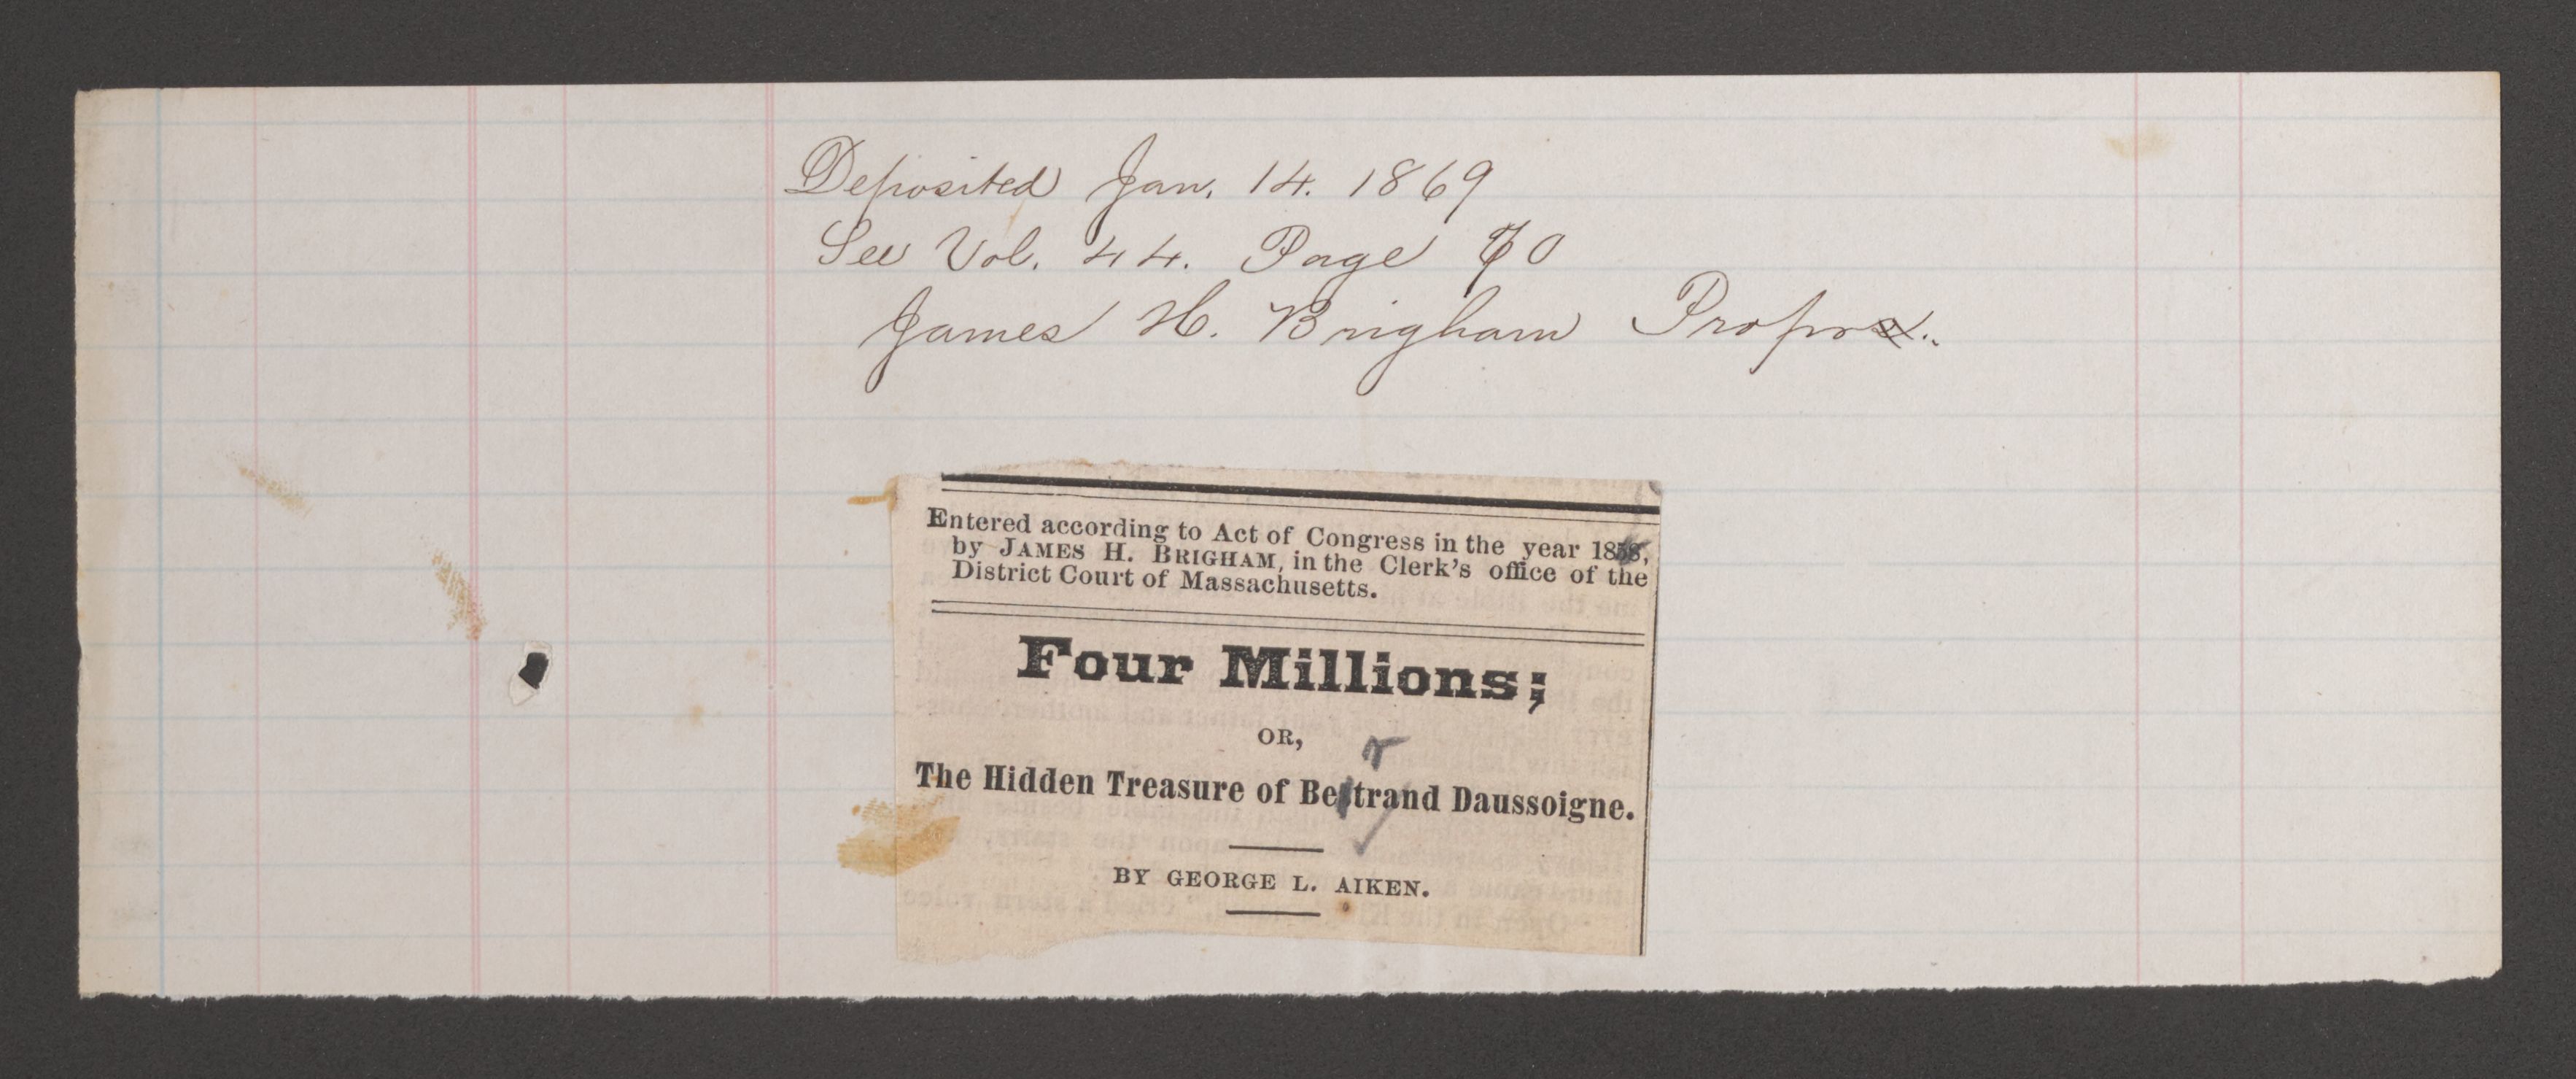 Deposited Jan. 14. 1869
See Vol. 44. Page 70
James H. Brigham Propr.
Entered according to Act of Congress in the year 1858,
by JAMES H. BRIGHAM, in the Clerk's office of the
District Court of Massachusetts.
Four Millions;
OR,
r
The Hidden Treasure of Bertrand Daussoigne.
BY GEORGE L. AIKEN.